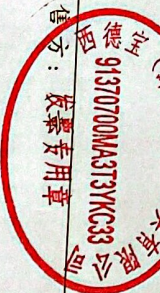 西德宝(
有限公司
91370700MA3T3YKC33
发票专用章
售方：